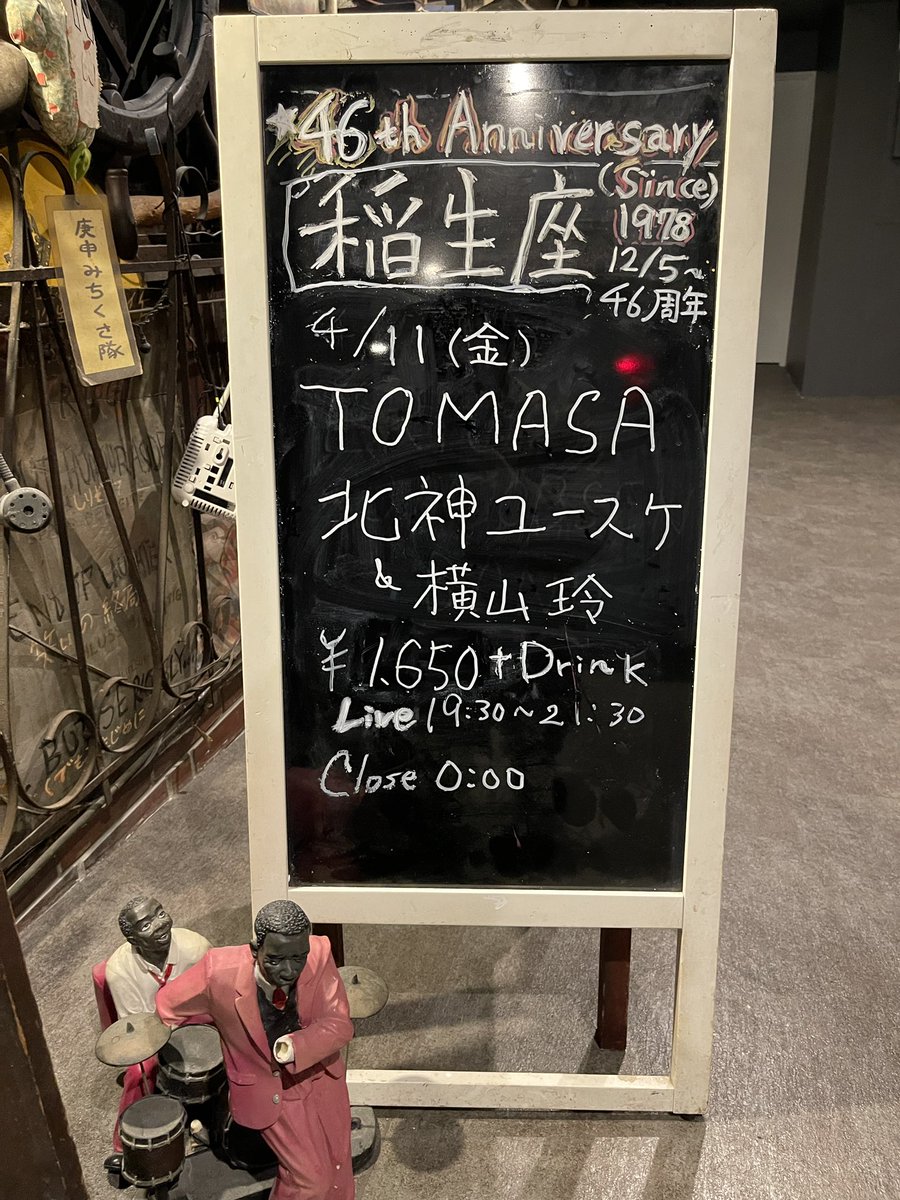 ★46th Anniversary
稲生座
(Siince)
1978
12/5~
46周年
4/11(金)
TOMASA
北神ユースケ
& 横山玲
¥1.650+Drink
Live 19:30~21:30
Close 0:00
庚申みちくさ隊